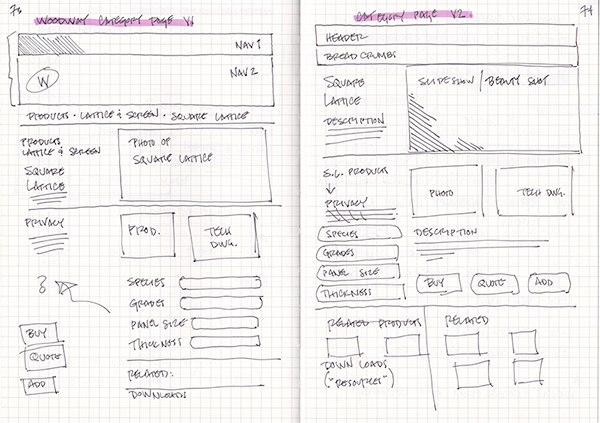 73
WOODWAY CATEGORY PAGE V1
NAV 1
NAV 2
W
PRODUCTS · LATTICE & SCREEN · SQUARE LATTICE
PRODUCTS
LATTICE & SCREEN
SQUARE
LATTICE
PHOTO OF
SQUARE LATTICE
PRIVACY
PROD.
TECH
DWG.
?
SPECIES
GRADES
PANEL SIZE
THICKNESS
BUY
QUOTE
ADD
RELATED:
DOWNLOADS
74
CATEGORY PAGE V2
HEADER
BREAD CRUMBS
SQUARE
LATTICE
DESCRIPTION
SLIDESHOW / BEAUTY SHOT
PRODUCTS
PRIVACY
PHOTO
TECH DWG.
SPECIES
GRADES
PANEL SIZE
THICKNESS
DESCRIPTION
BUY
QUOTE
ADD
RELATED PRODUCTS
DOWNLOADS
("RESOURCES")
RELATED